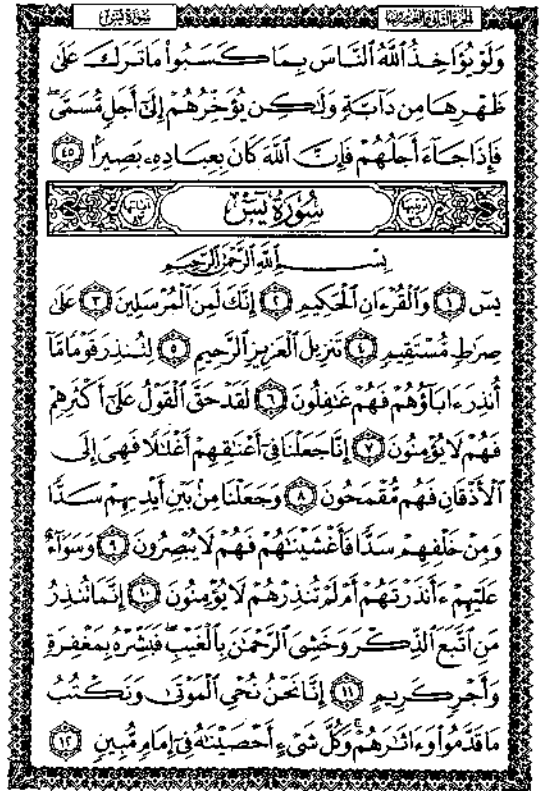 سورة يس
الجزء الثاني والعشرون
وَلَوْ يُؤَاخِذُ ٱللَّهُ ٱلنَّاسَ بِمَا كَسَبُوا۟ مَا تَرَكَ عَلَىٰ
ظَهْرِهَا مِن دَآبَّةٍ وَلَٰكِن يُؤَخِّرُهُمْ إِلَىٰٓ أَجَلٍ مُّسَمًّى ۖ
فَإِذَا جَآءَ أَجَلُهُمْ فَإِنَّ ٱللَّهَ كَانَ بِعِبَادِهِۦ بَصِيرًۢا ٤٥
سُورَةُ يسٓ
بِسْمِ ٱللَّهِ ٱلرَّحْمَٰنِ ٱلرَّحِيمِ
يسٓ ١ وَٱلْقُرْءَانِ ٱلْحَكِيمِ ٢ إِنَّكَ لَمِنَ ٱلْمُرْسَلِينَ ٣ عَلَىٰ
صِرَٰطٍ مُّسْتَقِيمٍ ٤ تَنزِيلَ ٱلْعَزِيزِ ٱلرَّحِيمِ ٥ لِتُنذِرَ قَوْمًا مَّآ
أُنذِرَ ءَابَآؤُهُمْ فَهُمْ غَٰفِلُونَ ٦ لَقَدْ حَقَّ ٱلْقَوْلُ عَلَىٰٓ أَكْثَرِهِمْ
فَهُمْ لَا يُؤْمِنُونَ ٧ إِنَّا جَعَلْنَا فِىٓ أَعْنَٰقِهِمْ أَغْلَٰلًا فَهِىَ إِلَى
ٱلْأَذْقَانِ فَهُم مُّقْمَحُونَ ٨ وَجَعَلْنَا مِنۢ بَيْنِ أَيْدِيهِمْ سَدًّا
وَمِنْ خَلْفِهِمْ سَدًّا فَأَغْشَيْنَٰهُمْ فَهُمْ لَا يُبْصِرُونَ ٩ وَسَوَآءٌ
عَلَيْهِمْ ءَأَنذَرْتَهُمْ أَمْ لَمْ تُنذِرْهُمْ لَا يُؤْمِنُونَ ١٠ إِنَّمَا تُنذِرُ
مَنِ ٱتَّبَعَ ٱلذِّكْرَ وَخَشِىَ ٱلرَّحْمَٰنَ بِٱلْغَيْبِ ۖ فَبَشِّرْهُ بِمَغْفِرَةٍ
وَأَجْرٍ كَرِيمٍ ١١ إِنَّا نَحْنُ نُحْىِ ٱلْمَوْتَىٰ وَنَكْتُبُ
مَا قَدَّمُوا۟ وَءَاثَٰرَهُمْ ۚ وَكُلَّ شَىْءٍ أَحْصَيْنَٰهُ فِىٓ إِمَامٍ مُّبِينٍ ١٢